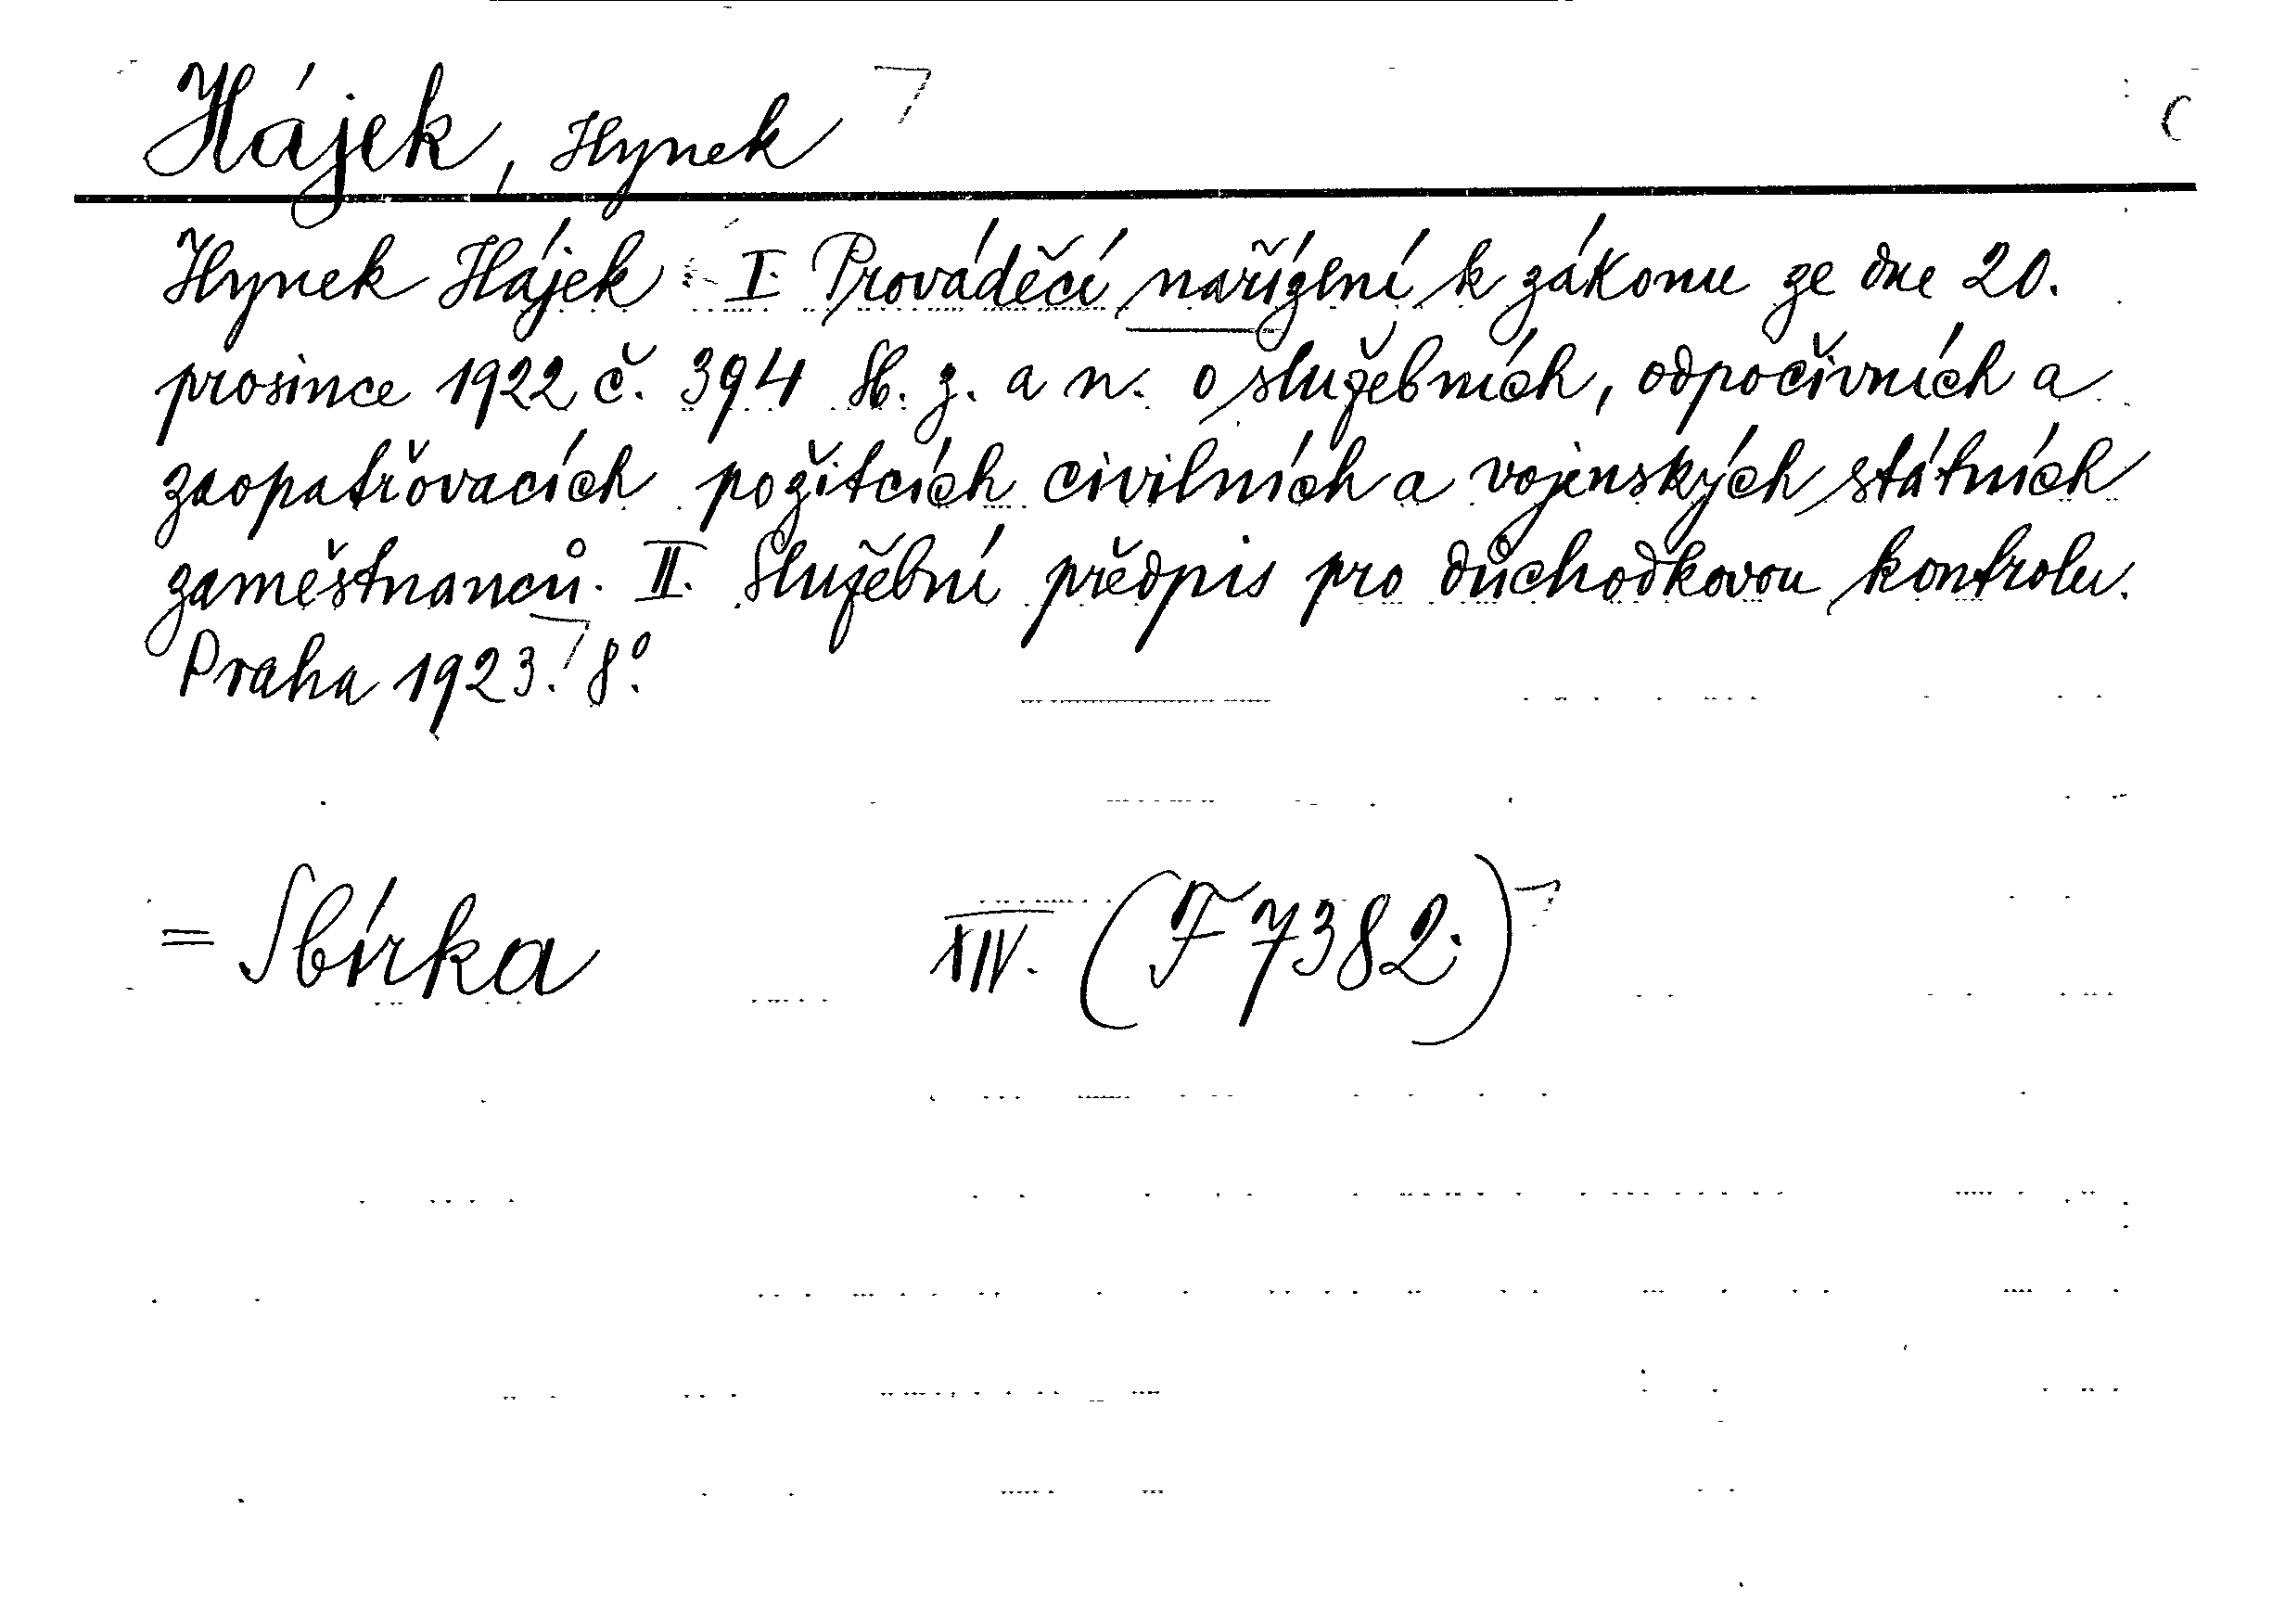 Hájek, Hynek
Hynek Hájek: I. Prováděcí nařízení k zákonu ze dne 20.
prosince 1922 č. 394 Sb. z. a n. o služebních, odpočivních a
zaopatřovacích požitcích civilních a vojenských státních
zaměstnanců. II. Služební předpis pro důchodkovou kontrolu.
Praha 1923. 8º.
= Sbírka XIV. (F 7382.)